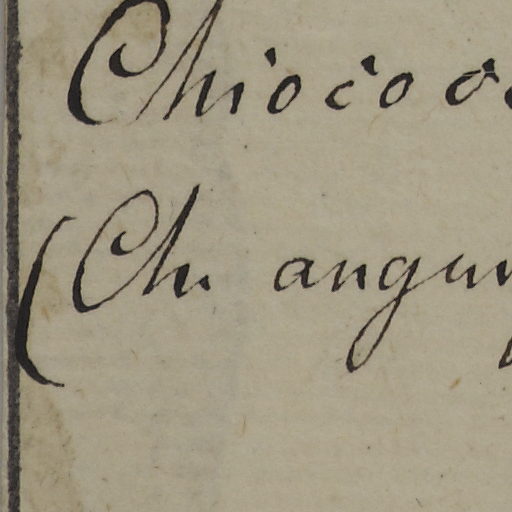 Chiococ
(Ch. angu